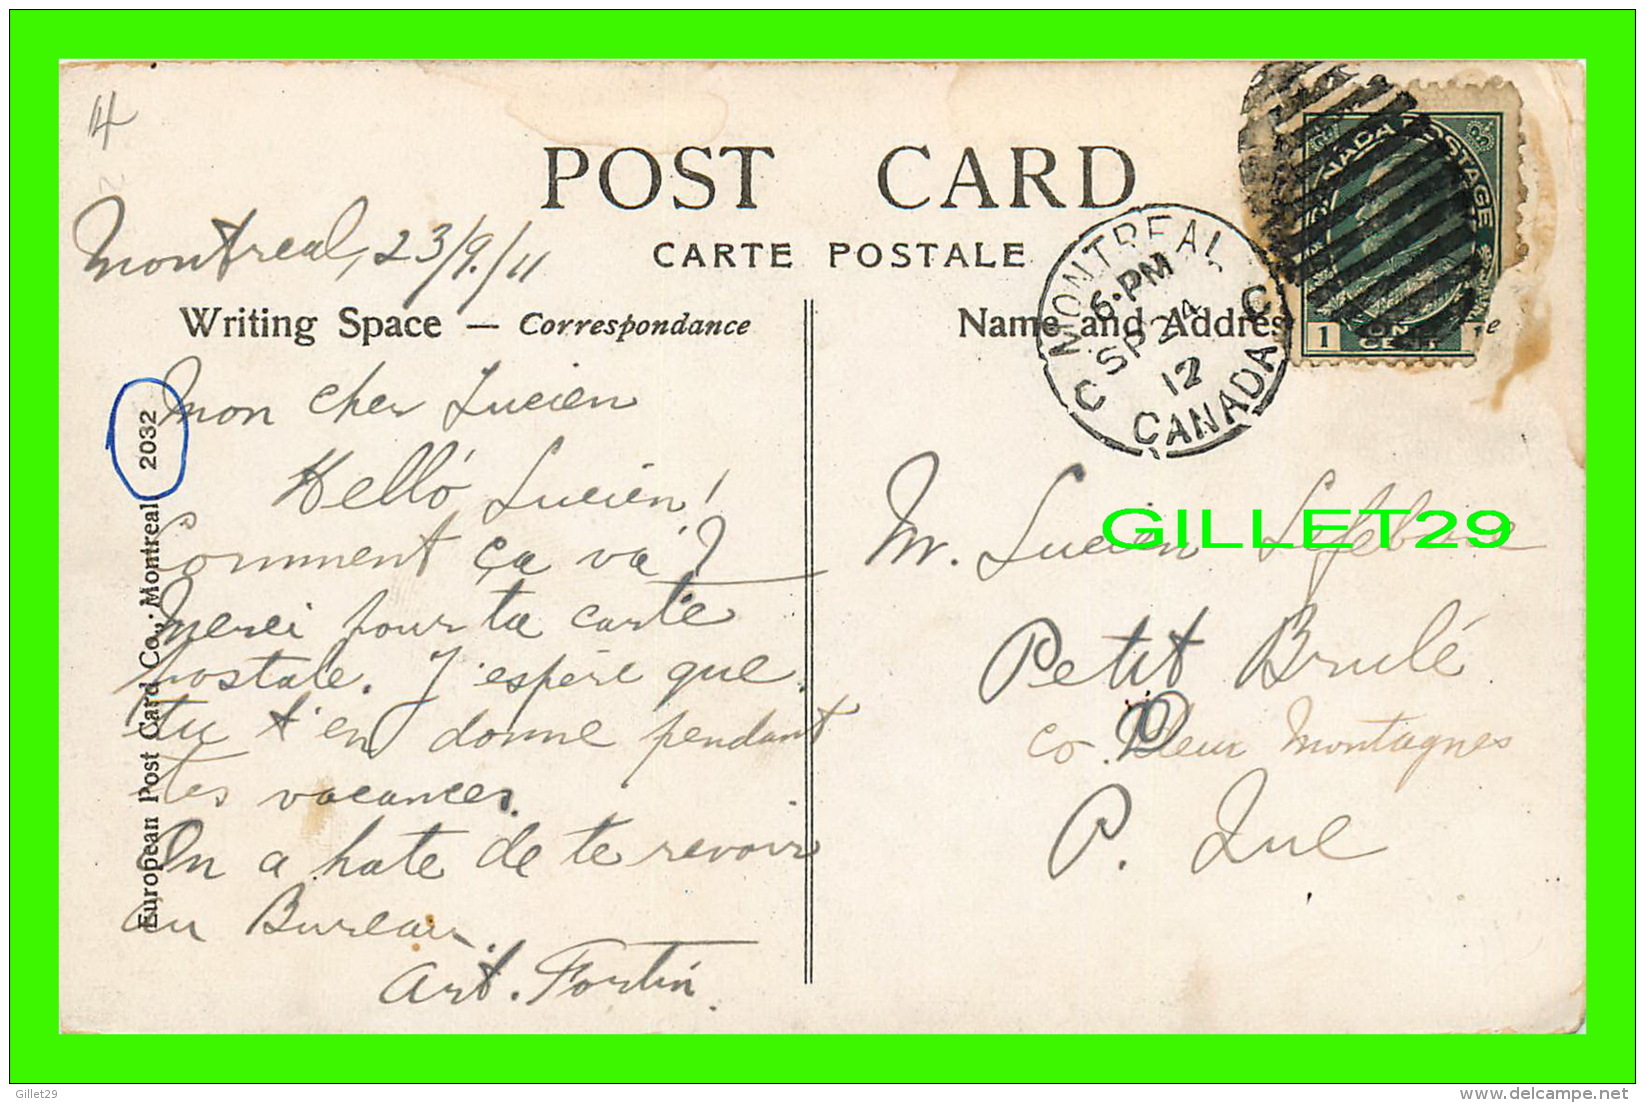 14
POST CARD
CARTE POSTALE
Montreal, 23/9./11
Writing Space — Correspondance
Name and Addres
MONTREAL
6·PM
SP 24
12
CANADA
C C
CANADA POSTAGE
1
ONE
CENT
Mon cher Lucien
Hello Lucien!
Comment ça va?
Merci pour ta carte
postale. J'espère que
tu t'en donne pendant
tes vacances.
On a hate de te revoir
au Bureau.
Art. Fortin
M. Lucien Lefebvre
Petit Brulé
co. Deux Montagnes
P. Que
European Post Card Co., Montreal 2032
GILLET29
Gillet29
delcampe.net